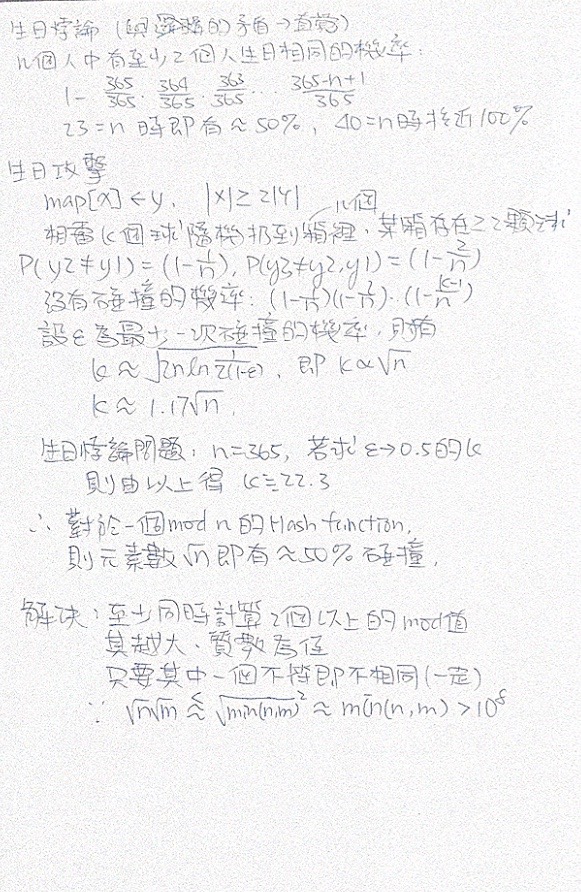 生日悖論 (與邏輯的矛盾→直覺)
n個人中有至少2個人生日相同的機率:
1- 365/365 · 364/365 · 363/365 ... 365-n+1/365
23=n 時即有≈50%, 40=n時接近100%
生日攻擊
map[x]←y, |X|≥2|Y|
n個
相當 k個球 隨機扔到箱裡, 某箱存在≥2顆球
P(y2≠y1)=(1-1/n), P(y3≠y2,y1)=(1-2/n)
沒有碰撞的機率: (1-1/n)(1-2/n)·(1-k-1/n)
設ε為最少一次碰撞的機率, 則有
k≈√2n ln 1/2(1-ε), 即 k∝√n
k≈1.17√n,
生日悖論問題: n=365, 若求 ε→0.5的k
則由以上得 k≒22.3
∴ 對於一個mod n 的Hash function,
則元素數√n即有≈50%碰撞,
解決: 至少同時計算2個以上的mod值
其越大、質數為佳
只要其中一個不撞即不相同(一定)
∵ √n√m ≲ √min(n,m)² ≈ min(n,m) > 10⁸